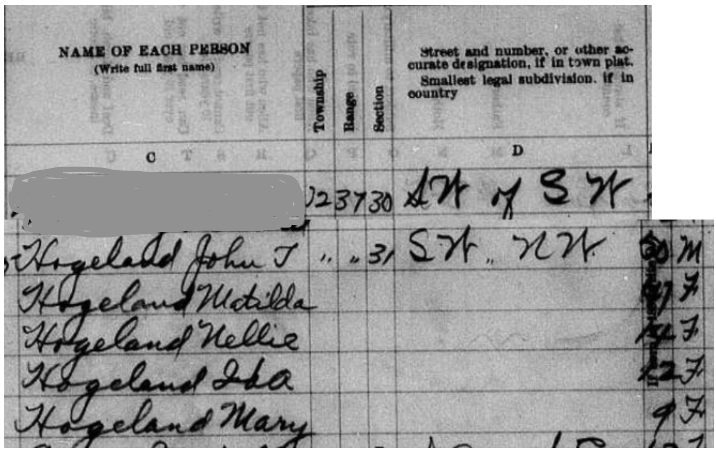 NAME OF EACH PERSON
(Write full first name)
Township
Range
Section
Street and number, or other accurate designation, if in town plat.
Smallest legal subdivision. if in country
C
D
2 37 30 SW of S W
Hogeland John T " " 31 S W " N W M
Hogeland Matilda F
Hogeland Nellie F
Hogeland Ida 12 F
Hogeland Mary 9 F